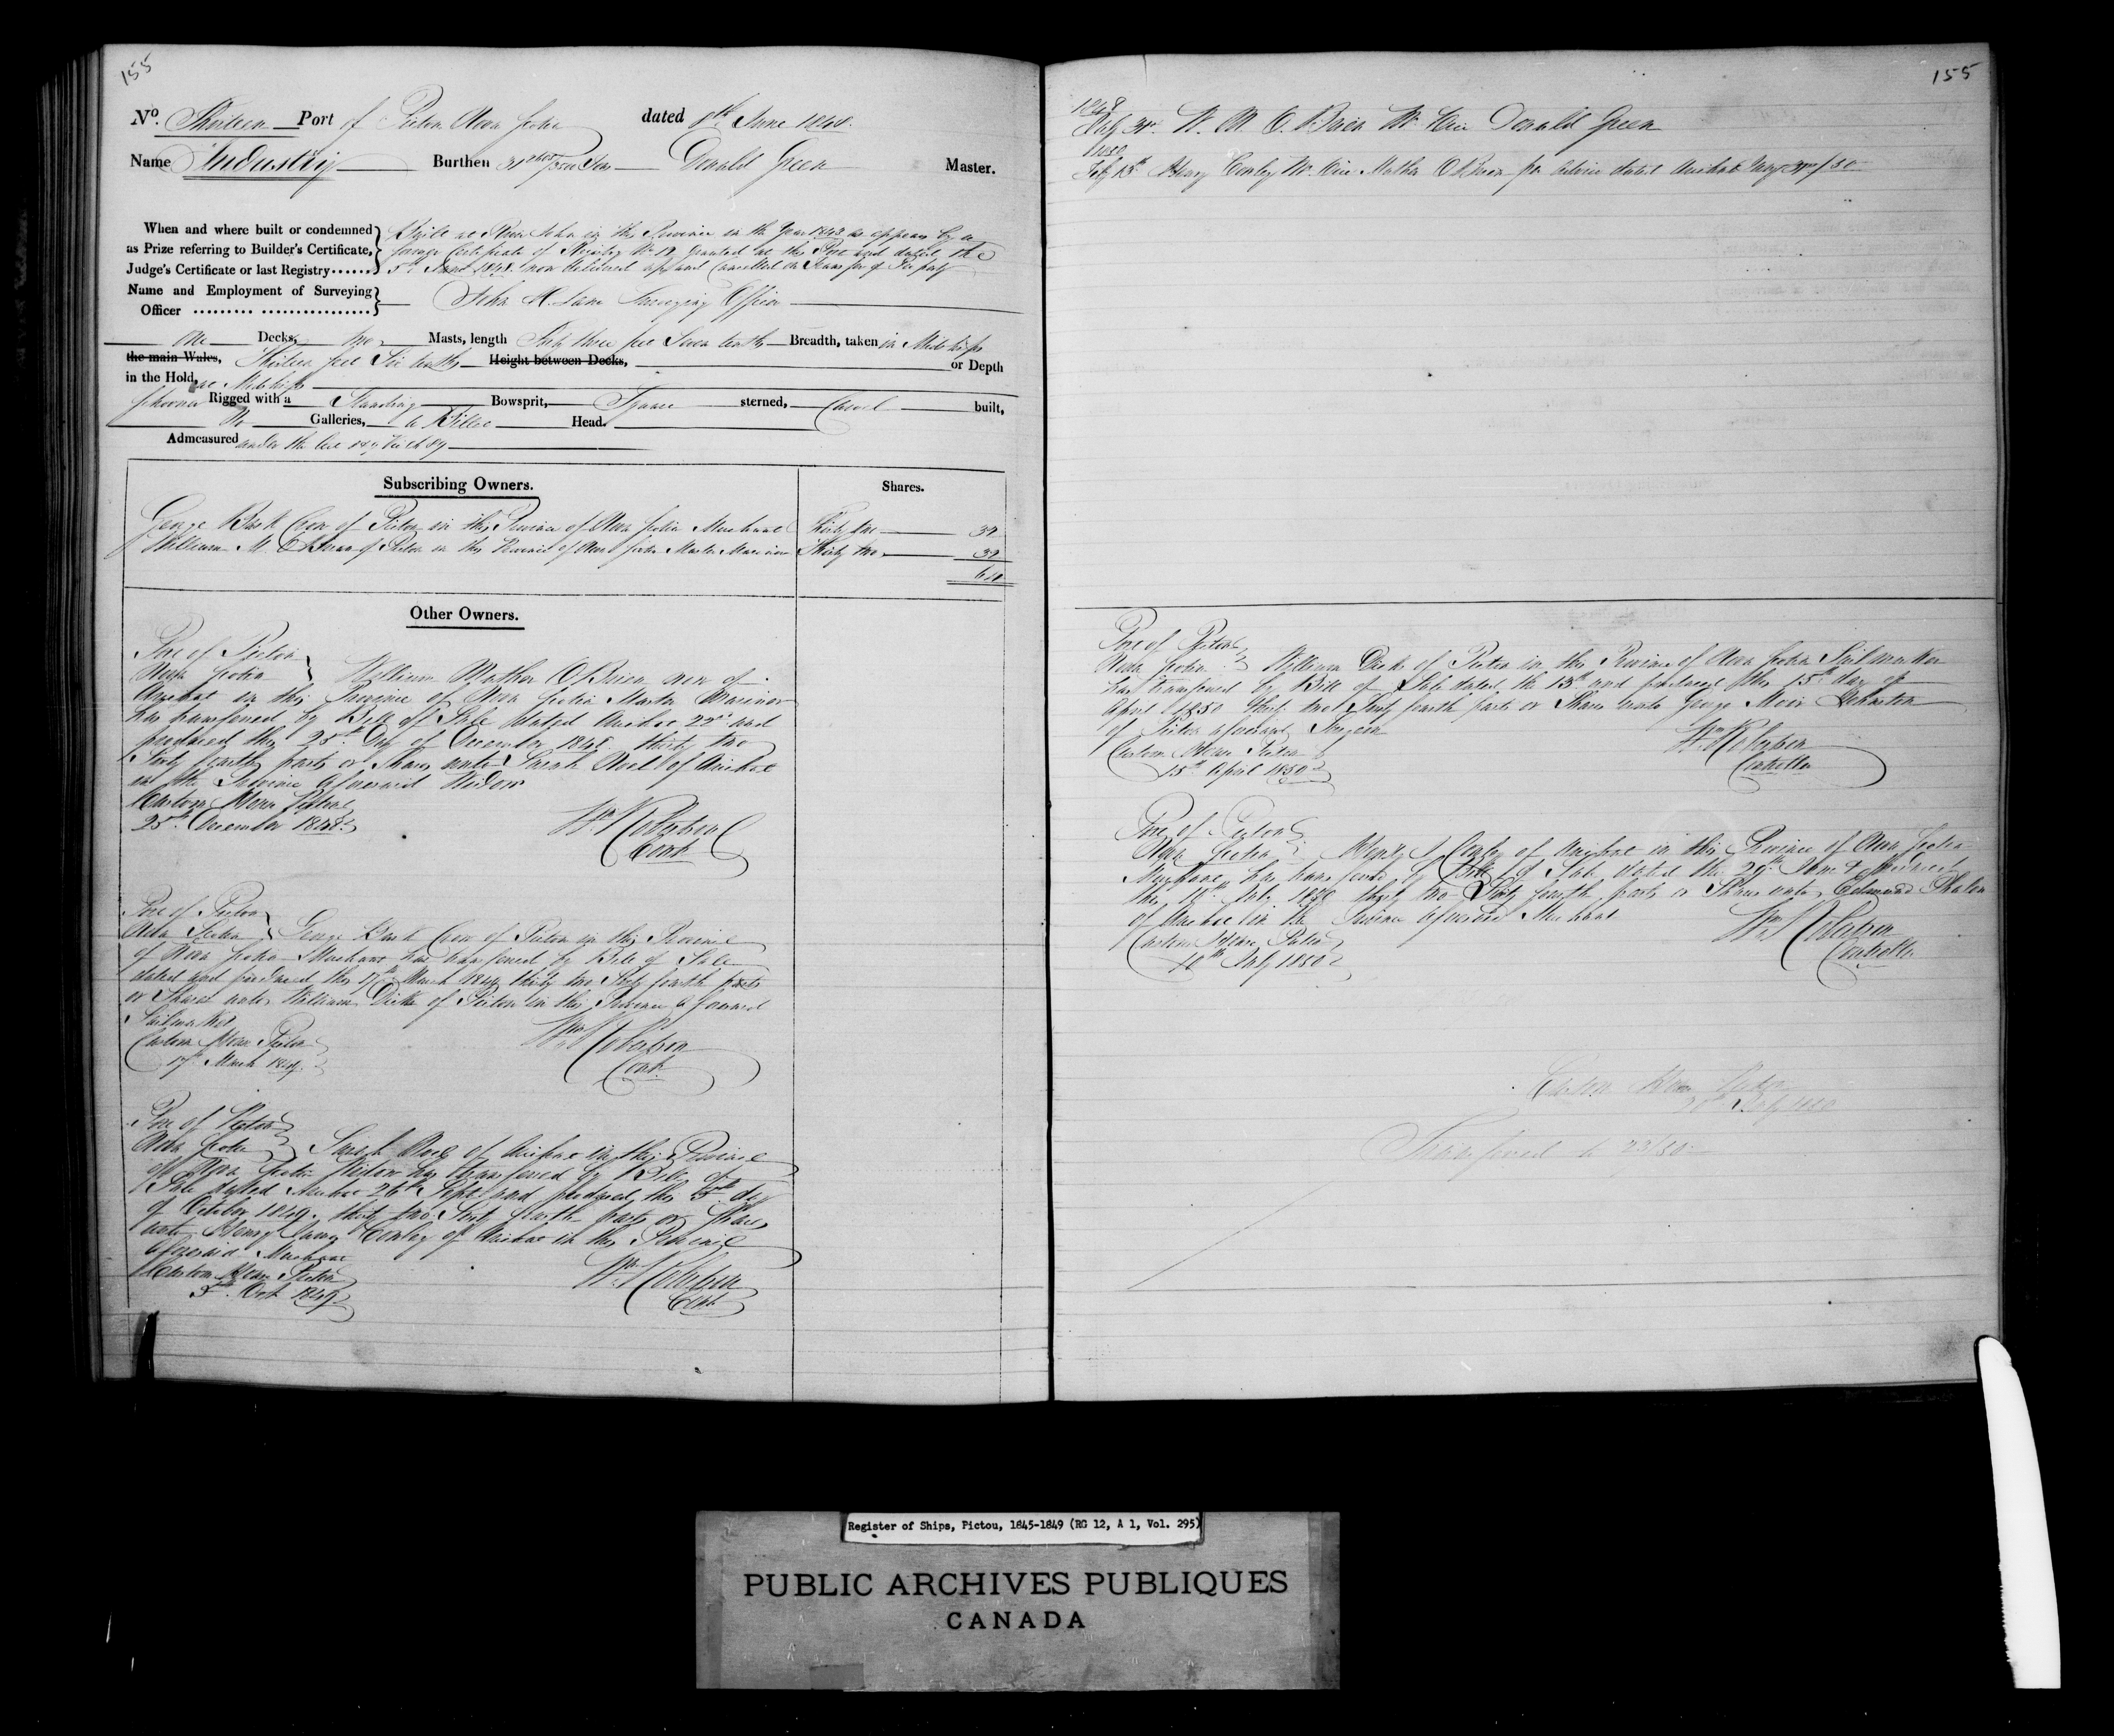 155
No. Thirteen Port of Pictou Nova Scotia dated 8th June 1848.
Name Industry Burthen 31 Tons Donald Green Master.
When and where built or condemned as Prize referring to Builder's Certificate, Judge's Certificate or last Registry......
Built at River John in this Province in the Year 1843 as appears by a
former Certificate of Registry No 12 granted at this Port and dated the
5th June 1848 now delivered up and Cancelled on Transfer of Property
Name and Employment of Surveying Officer
John H. Lane Surveying Officer
One Decks, two Masts, length Forty three feet Seven tenths Breadth, taken in Midships
the main Wales, Thirteen feet Six tenths Height between Decks, or Depth
in the Hold, at Midships
Schooner Rigged with a Standing Bowsprit, Square sterned, Carvel built,
No Galleries, a Billet Head.
Admeasured under the
Subscribing Owners. Shares.
George Bush of Pictou in this Province of Nova Scotia Merchant Thirty two 32
William M. OBrien of Pictou in this Province of Nova Scotia Master Mariner Thirty two 32
64
Other Owners.
Port of Pictou
Nova Scotia William Mather OBrien now of
Arichat in this Province of Nova Scotia Master Mariner
has transferred by Bill of Sale dated Arichat 22nd and
produced this 25th Day of December 1848 thirty two
Sixty fourth parts or Shares unto Sarah Noel of Arichat
in the Province aforesaid Widow
Custom House Pictou
25th December 1848
Wm Robertson
Cont
Port of Pictou
Nova Scotia George Bush of Pictou in this Province
of Nova Scotia Merchant has transferred by Bill of Sale
dated and produced this 17th March 1849 thirty two Sixty fourth parts
or Shares unto William Dick of Pictou in this Province aforesaid
Sailmaker
Custom House Pictou
17th March 1849.
Wm Robertson
Cont
Port of Pictou
Nova Scotia Sarah Noel of Arichat in this Province
of Nova Scotia Widow has transferred by Bill of
Sale dated Arichat 26th Sept and produced this 5th day
of October 1849. thirty two Sixty fourth parts or Shares
unto Henry Conley of Arichat in this Province
aforesaid Merchant
Custom House Pictou
5th Oct 1849
Wm Robertson
Cont
155
1848
July 31st W. M. O.Brien Mr. vice Donald Green
1850
Feby 13th Henry Conley Mr. vice Mather OBrien per advice dated Arichat
Port of Pictou
Nova Scotia William Dick of Pictou in this Province of Nova Scotia Sailmaker
has transferred by Bill of Sale dated the 13th and produced this 15th day of
April 1850 thirty two Sixty fourth parts or Shares unto George Moir Johnston
of Pictou aforesaid Surgeon
Custom House Pictou
15th April 1850
Wm Robertson
Controller
Port of Pictou
Nova Scotia Henry Conley of Arichat in this Province of Nova Scotia
Merchant has transferred by Bill of Sale dated the 29th June & produced
this 10th July 1850 thirty two Sixty fourth parts or Shares unto Edmund Phalen
of Arichat in the Province aforesaid Merchant
Custom House Pictou
10th July 1850
Wm Robertson
Controller
Custom House Pictou
Transferred to 23/50
Register of Ships, Pictou, 1845-1849 (RG 12, A 1, Vol. 295)
PUBLIC ARCHIVES PUBLIQUES
CANADA